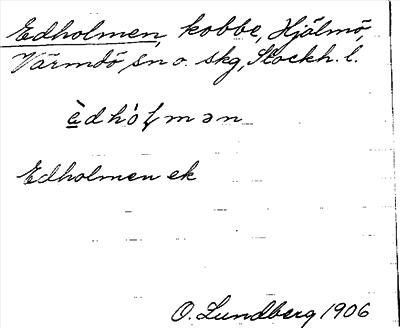 Edholmen, kobbe, Hjälmö,
Värmdö sn o. skg, Stockh. l.
èdhólmən
Edholmen ek
O. Lundberg 1906